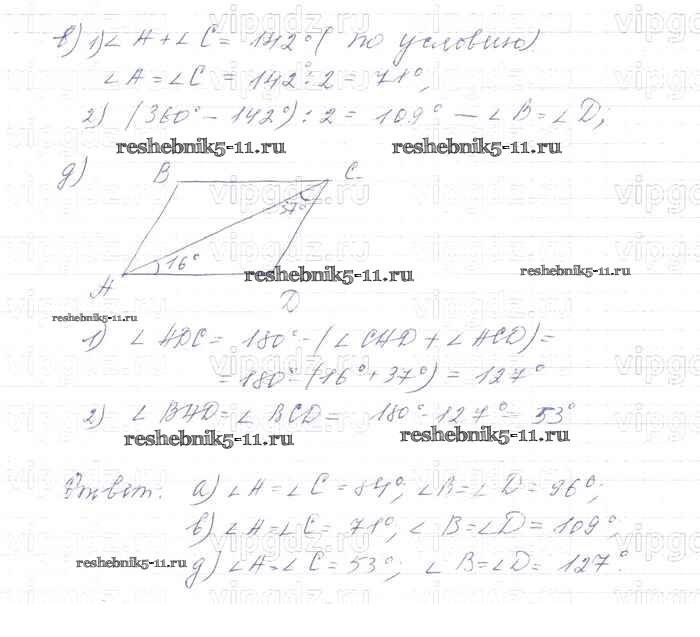 в) 1) ∠A + ∠C = 142° (по условию)
∠A = ∠C = 142° : 2 = 71°,
2) (360° - 142°) : 2 = 109° — ∠B = ∠D;
reshebnik5-11.ru reshebnik5-11.ru
д) B C
37°
16°
reshebnik5-11.ru reshebnik5-11.ru
A D
reshebnik5-11.ru
1) ∠ADC = 180° - (∠CAD + ∠ACD) =
= 180° - (16° + 37°) = 127°
2) ∠BAD = ∠BCD = 180° - 127° = 53°
reshebnik5-11.ru reshebnik5-11.ru
Ответ: а) ∠A = ∠C = 84°; ∠B = ∠D = 96°;
в) ∠A = ∠C = 71°; ∠B = ∠D = 109°;
reshebnik5-11.ru
д) ∠A = ∠C = 53°; ∠B = ∠D = 127°.
vipgdz.ru